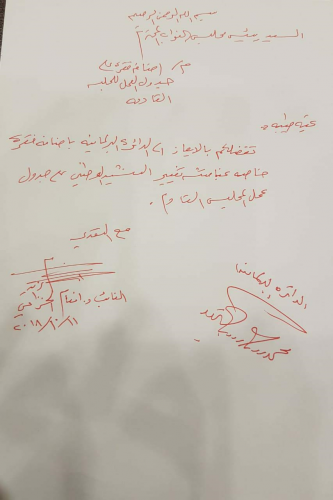 بسم الله الرحمن الرحيم
السيد رئيس مجلس النواب المحترم
م/ إضافة فقرة على
جدول اعمال الجلسة
القادمة
تحية طيبة
تفضلكم بالايعاز الى الدائرة البرلمانية باضافة فقرة
خاصة بمناقشة تغيير النشيد الوطني على جدول
عمل المجلس القادم.
مع التقدير
النائب د. انعام الخزاعي
٢٠١٨/١٠/١١
الدائرة البرلمانية